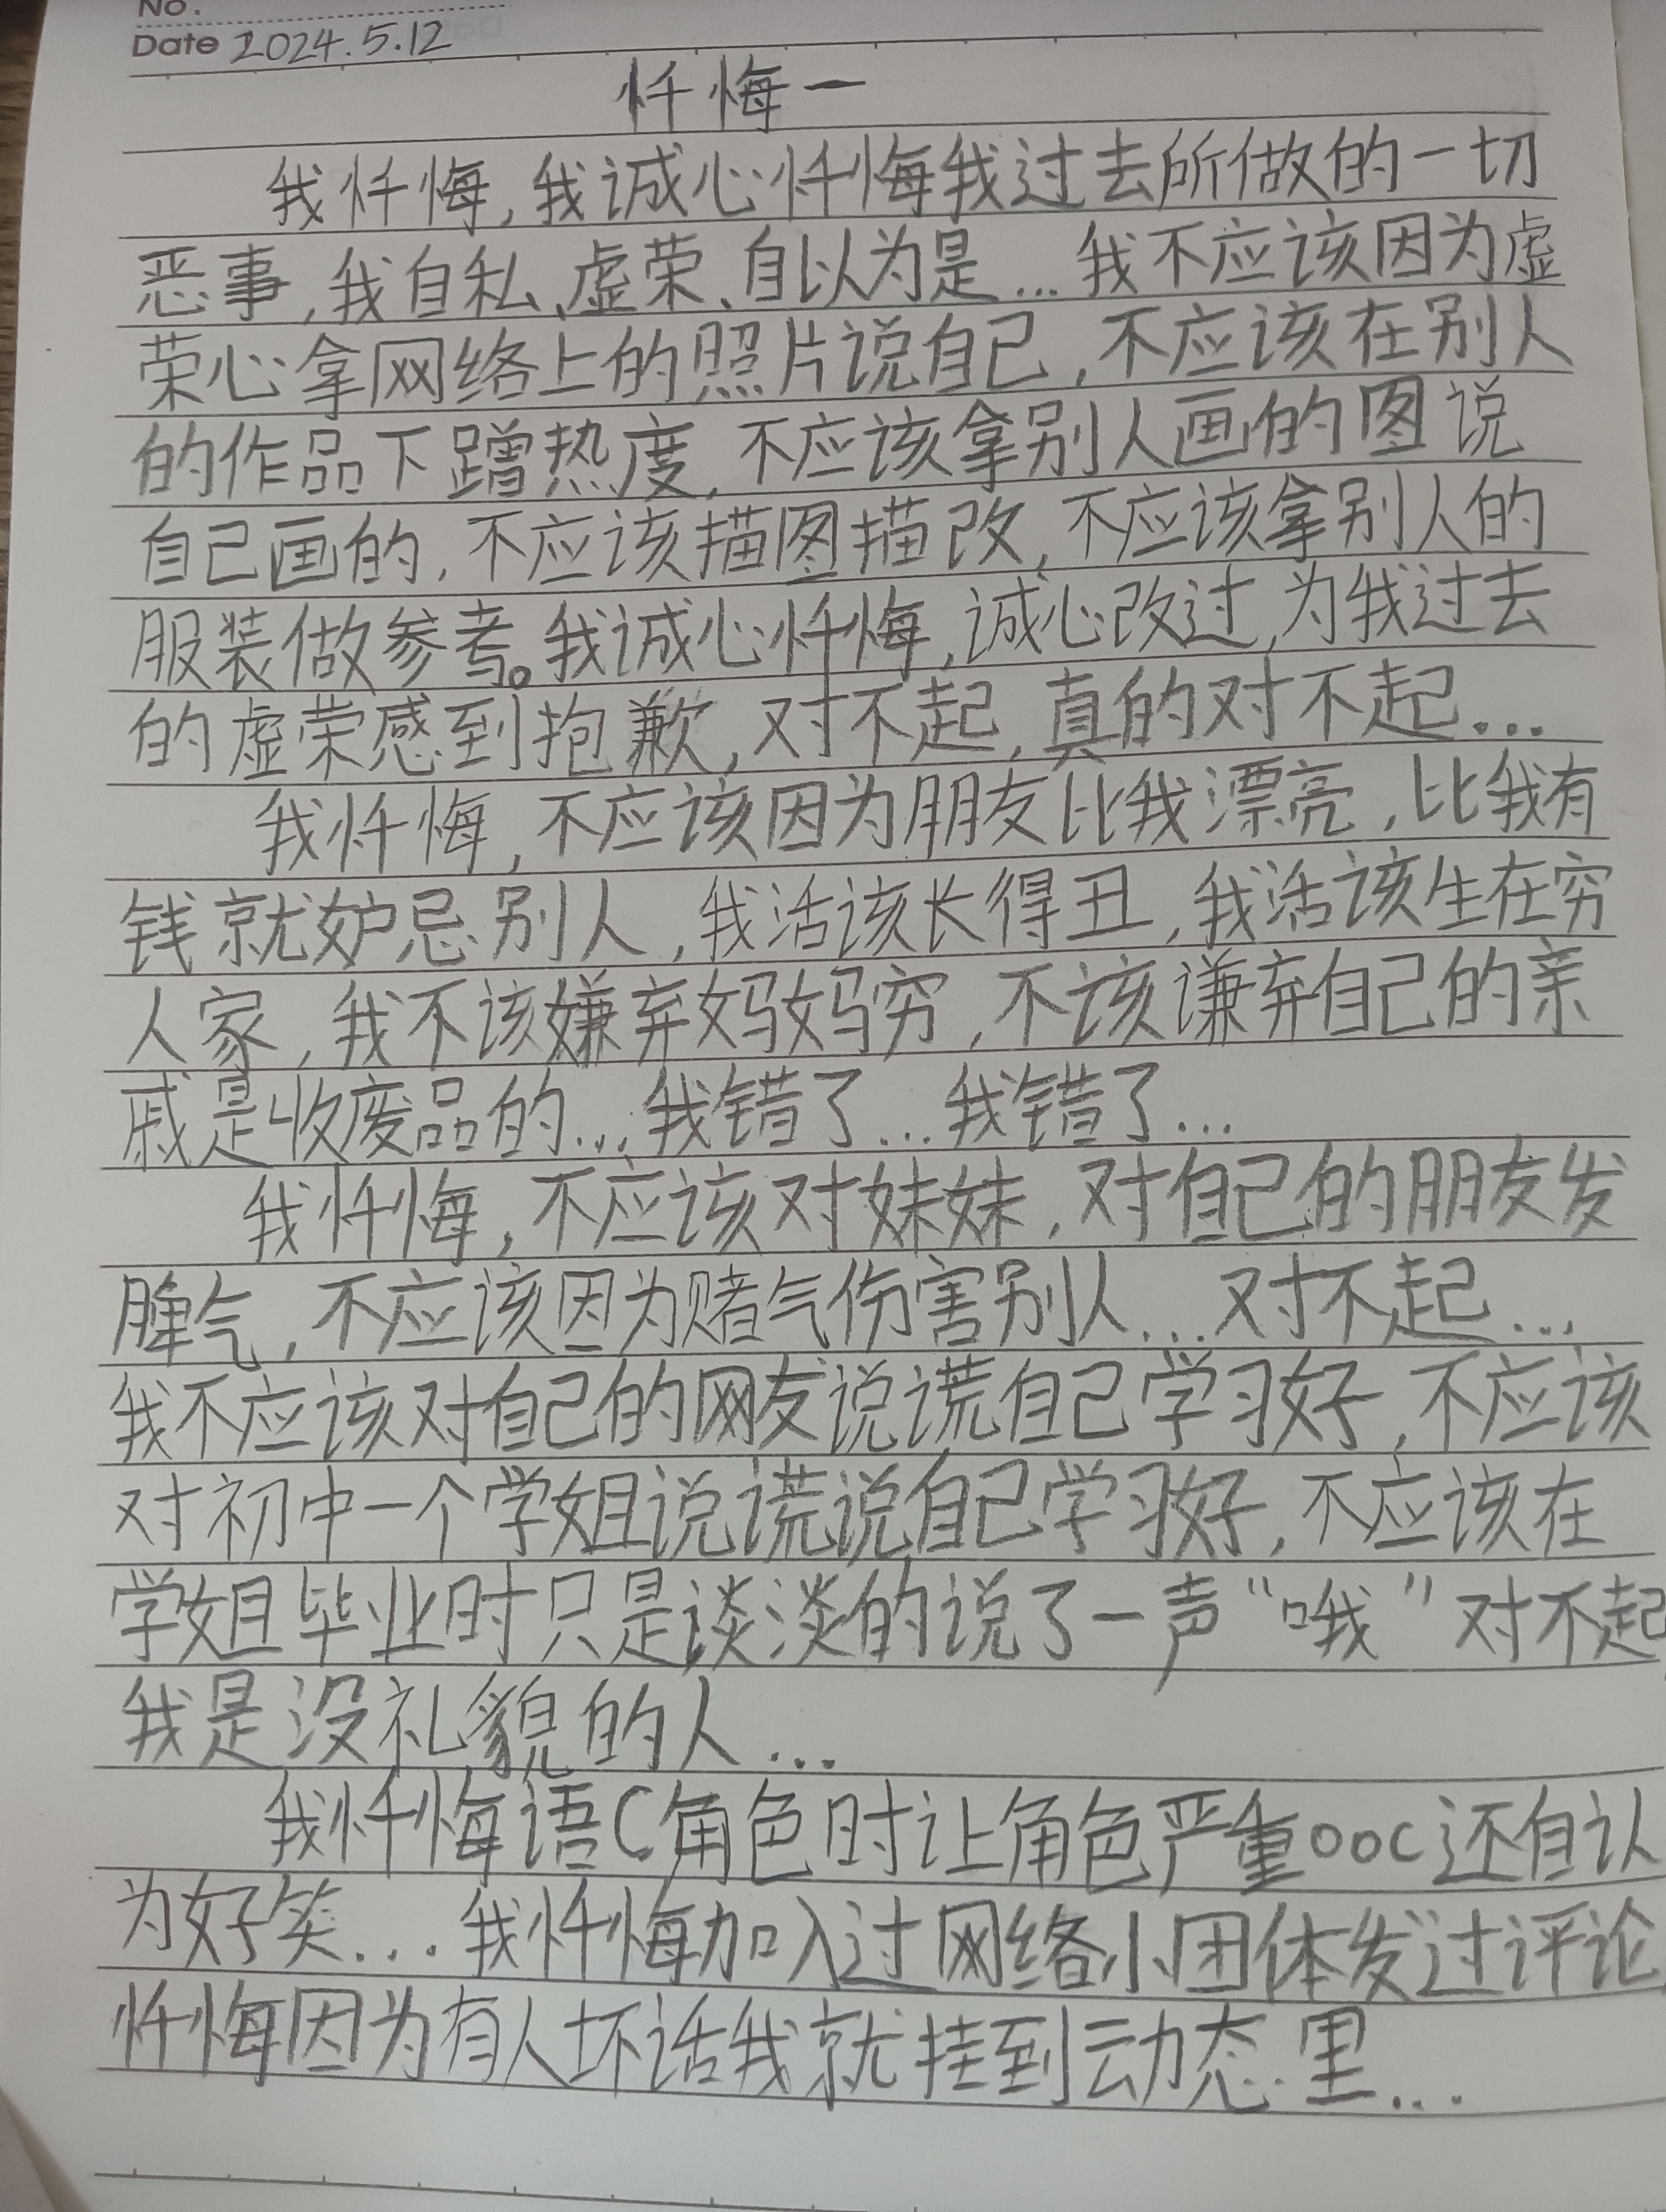 No.
Date 2024.5.12
忏悔一
我忏悔,我诚心忏悔我过去所做的一切
恶事,我自私、虚荣、自以为是...我不应该因为虚
荣心拿网络上的照片说自己,不应该在别人
的作品下蹭热度,不应该拿别人画的图说
自己画的,不应该描图描改,不应该拿别人的
服装做参考。我诚心忏悔,诚心改过,为我过去
的虚荣感到抱歉,对不起,真的对不起...
我忏悔,不应该因为朋友比我漂亮,比我有
钱就妒忌别人,我活该长得丑,我活该生在穷
人家,我不该嫌弃妈妈穷,不该谦弃自己的亲
戚是收废品的...我错了...我错了...
我忏悔,不应该对妹妹,对自己的朋友发
脾气,不应该因为赌气伤害别人...对不起...
我不应该对自己的网友说谎自己学习好,不应该
对初中一个学姐说谎说自己学习好,不应该在
学姐毕业时只是谈淡的说了一声“哦”对不起,
我是没礼貌的人...
我忏悔语C角色时让角色严重ooc还自认
为好笑...我忏悔加入过网络小团体发过评论,
忏悔因为有人坏话我就挂到动态里...